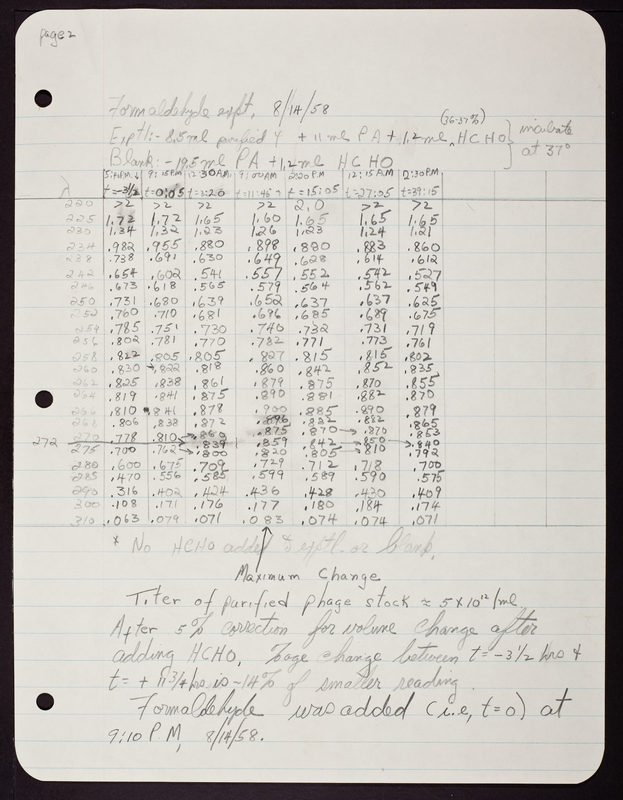 page 2
Formaldehyde expt. 8/14/58
(36-37%)
Exptl:- 8.5 ml purified + 11 ml PA + 1.2 ml HCHO } incubate
Blank:- 19.5 ml PA + 1.2 ml HCHO at 37°
λ 5:40 P.M. 9:15 P.M. 12:30 A.M. 9:00 A.M. 2:20 P.M. 12:15 A.M. 12:30 P.M.
t=-3½ t=0:05 t=3:20 t=11:45 t=15:05 t=27:05 t=39:15
220 >2 >2 >2 >2 2.0 >2 >2
225 1.72 1.72 1.65 1.60 1.65 1.65 1.65
230 1.34 1.32 1.23 1.26 1.23 1.24 1.21
234 .982 .955 .880 .898 .880 .883 .860
238 .738 .691 .630 .649 .628 .614 .612
242 .654 .602 .541 .557 .552 .542 .527
246 .673 .618 .565 .579 .564 .562 .549
250 .731 .680 .639 .652 .637 .637 .625
252 .760 .710 .681 .696 .685 .689 .675
254 .785 .751 .730 .740 .732 .731 .719
256 .802 .781 .770 .782 .771 .773 .761
258 .822 .805 .805 .827 .815 .815 .802
260 .830 .822 .818 .860 .842 .852 .835
262 .825 .838 .861 .879 .875 .870 .855
264 .819 .841 .875 .890 .881 .882 .870
266 .810 .841 .878 .900 .885 .890 .879
268 .806 .838 .872 .896 .882 .882 .865
270 .778 .810 .860 .875 .870 .870 .852
272 .839 .859 .842 .850 .840
275 .700 .762 .800 .820 .805 .810 .792
280 .600 .675 .709 .729 .712 .718 .700
285 .470 .556 .585 .599 .589 .590 .575
290 .316 .402 .424 .436 .428 .430 .409
300 .108 .171 .176 .177 .180 .184 .174
310 .063 .079 .071 .083 .074 .074 .071
* No HCHO added to exptl. or blank.
Maximum Change
Titer of purified phage stock ≈ 5 x 10¹²/ml
After 5% correction for volume change after
adding HCHO, %age change between t = -3½ hrs &
t = + 11¾ hrs is ~14% of smaller reading.
Formaldehyde was added (i.e, t=0) at
9:10 P.M, 8/14/58.